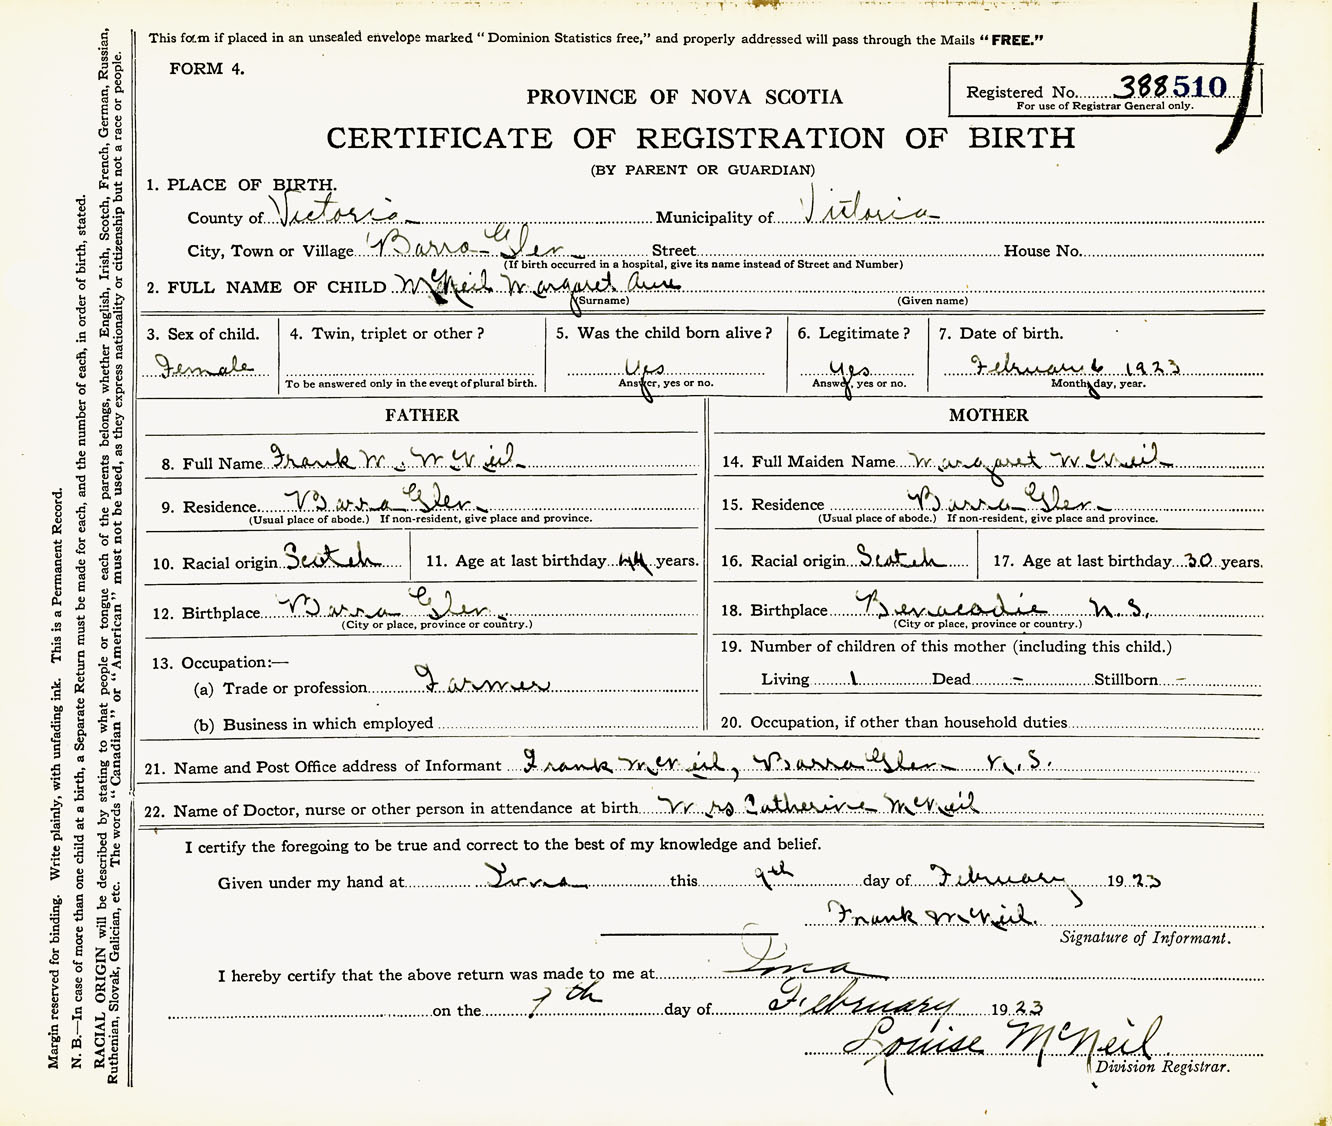 This form if placed in an unsealed envelope marked "Dominion Statistics free," and properly addressed will pass through the Mails "FREE."
FORM 4.
Registered No. 388510
For use of Registrar General only.
PROVINCE OF NOVA SCOTIA
CERTIFICATE OF REGISTRATION OF BIRTH
(BY PARENT OR GUARDIAN)
1. PLACE OF BIRTH.
County of Victoria Municipality of Victoria
City, Town or Village Barra Glen Street House No.
(If birth occurred in a hospital, give its name instead of Street and Number)
2. FULL NAME OF CHILD McNeil Margaret Anne
(Surname) (Given name)
3. Sex of child. 4. Twin, triplet or other ? 5. Was the child born alive ? 6. Legitimate ? 7. Date of birth.
Female Yes Yes February 6 1923
To be answered only in the event of plural birth. Answer, yes or no. Answer, yes or no. Month, day, year.
FATHER MOTHER
8. Full Name Frank M. McNeil 14. Full Maiden Name Margaret McNeil
9. Residence Barra Glen 15. Residence Barra Glen
(Usual place of abode.) If non-resident, give place and province. (Usual place of abode.) If non-resident, give place and province.
10. Racial origin Scotch 11. Age at last birthday 44 years. 16. Racial origin Scotch 17. Age at last birthday 30 years.
12. Birthplace Barra Glen 18. Birthplace Benacadie N.S.
(City or place, province or country.) (City or place, province or country.)
13. Occupation:— 19. Number of children of this mother (including this child.)
(a) Trade or profession Farmer Living 1 Dead - Stillborn -
(b) Business in which employed 20. Occupation, if other than household duties
21. Name and Post Office address of Informant Frank McNeil, Barra Glen N.S.
22. Name of Doctor, nurse or other person in attendance at birth Mrs Catherine McNeil
I certify the foregoing to be true and correct to the best of my knowledge and belief.
Given under my hand at Iona this 9th day of February 1923
Frank McNeil.
Signature of Informant.
I hereby certify that the above return was made to me at Iona
on the 9th day of February 1923
Louise McNeil
Division Registrar.
Margin reserved for binding. Write plainly, with unfading ink. This is a Permanent Record.
N. B.—In case of more than one child at a birth, a Separate Return must be made for each, and the number of each, in order of birth, stated.
RACIAL ORIGIN will be described by stating to what people or tongue each of the parents belongs, whether English, Irish, Scotch, French, German, Russian,
Ruthenian, Slovak, Galician, etc. The words "Canadian" or "American" must not be used, as they express nationality or citizenship but not a race or people.